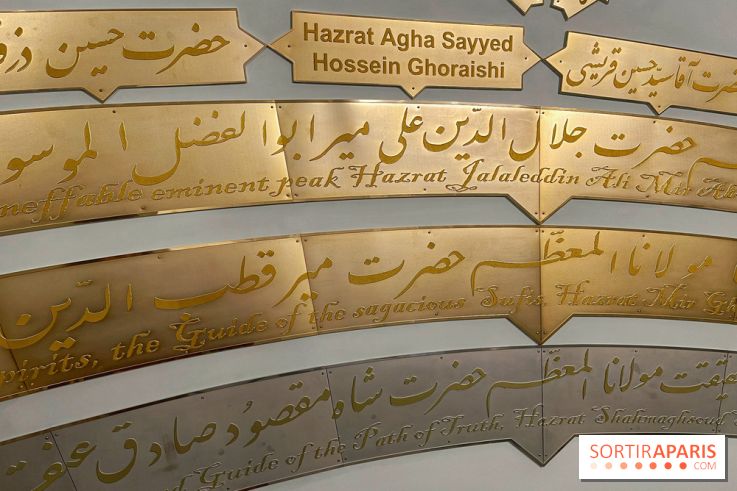 حضرت حسین دزفو
Hazrat Agha Sayyed
Hossein Ghoraishi
حضرت آقا سید حسین قریشی
حضرت جلال الدّین علی میر ابوالفضل الموسو
ineffable eminent peak Hazrat Jalaleddin Ali Mir Ab
مولانا المعظّم حضرت میر قطب الدّین
Spirits, the Guide of the sagacious Sufis, Hazrat Mir Gh
حقیقت مولانا المعظّم حضرت شاه مقصود صادق عنقا
and Guide of the Path of Truth, Hazrat Shahmaghsoud
SORTIRAPARIS
.COM